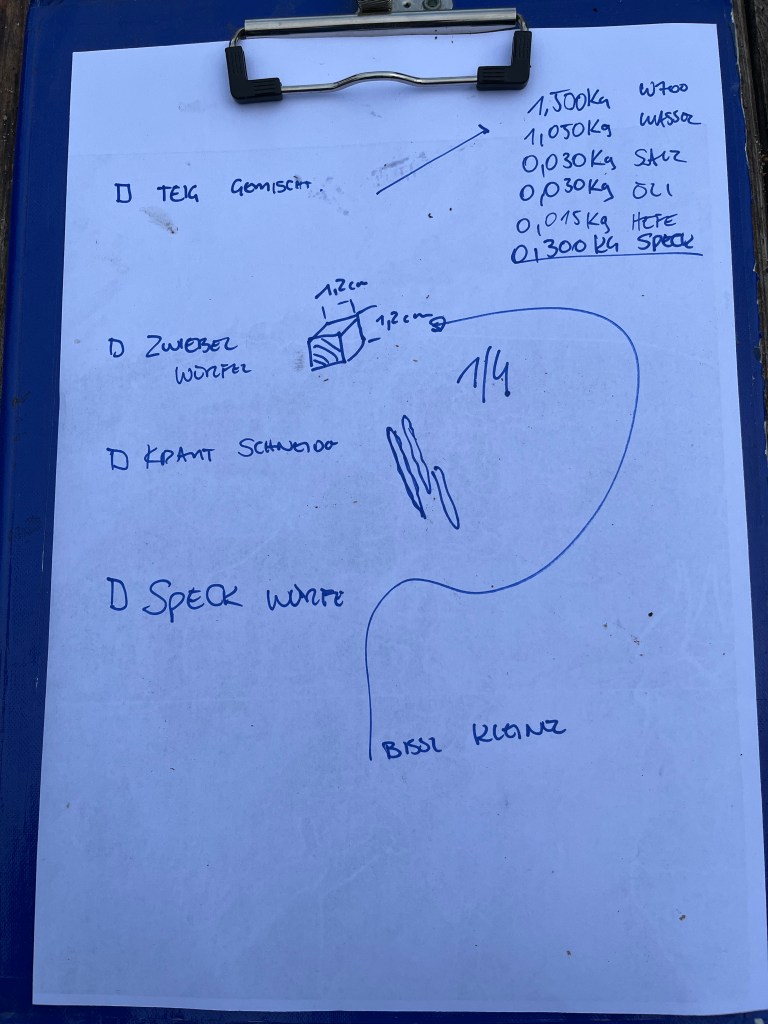 1,500Kg W700
1,050Kg WASSER
0,030Kg SALZ
0,030Kg ÖLI
0,015Kg HEFE
0,300KG SPECK
TEIG GEMISCHT
1,2cm
1,2cm
ZWIEBEL
WÜRFEL
1/4
KRAUT SCHNEIDE
SPECK WÜRFE
BISSL KLEINE